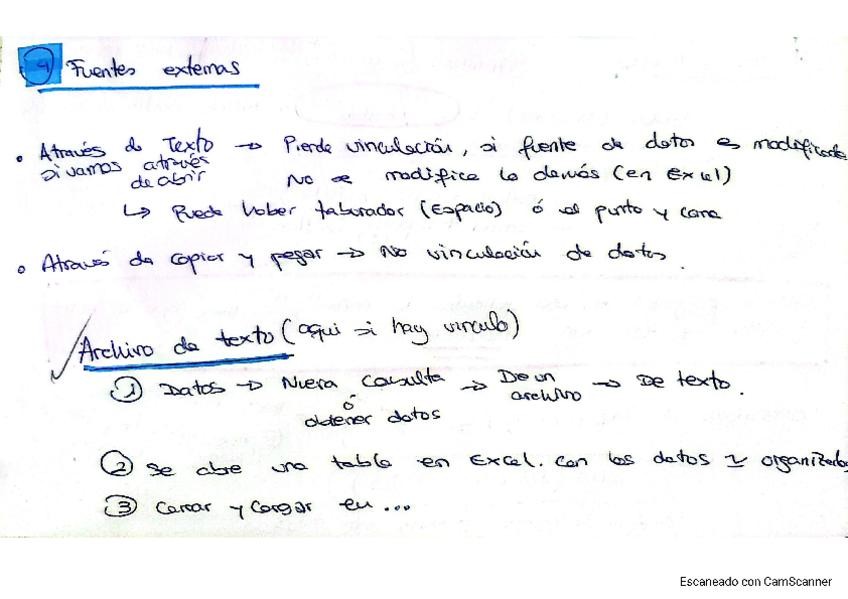 4 Fuentes externas
• Através de Texto → Pierde vinculación, si fuente de datos es modificada
si vamos através de abrir No se modifica lo demás (en Excel)
↳ Puede haber taburador (Espacio) ó el punto y coma
• Através de copiar y pegar → No vinculación de datos.
✓ Archivo de texto (aqui si hay vinculo)
① Datos → Nueva consulta ó obtener datos → De un archivo → De texto.
② se abre una tabla en Excel. con los datos organizados
③ Cerrar y cargar en ...
Escaneado con CamScanner